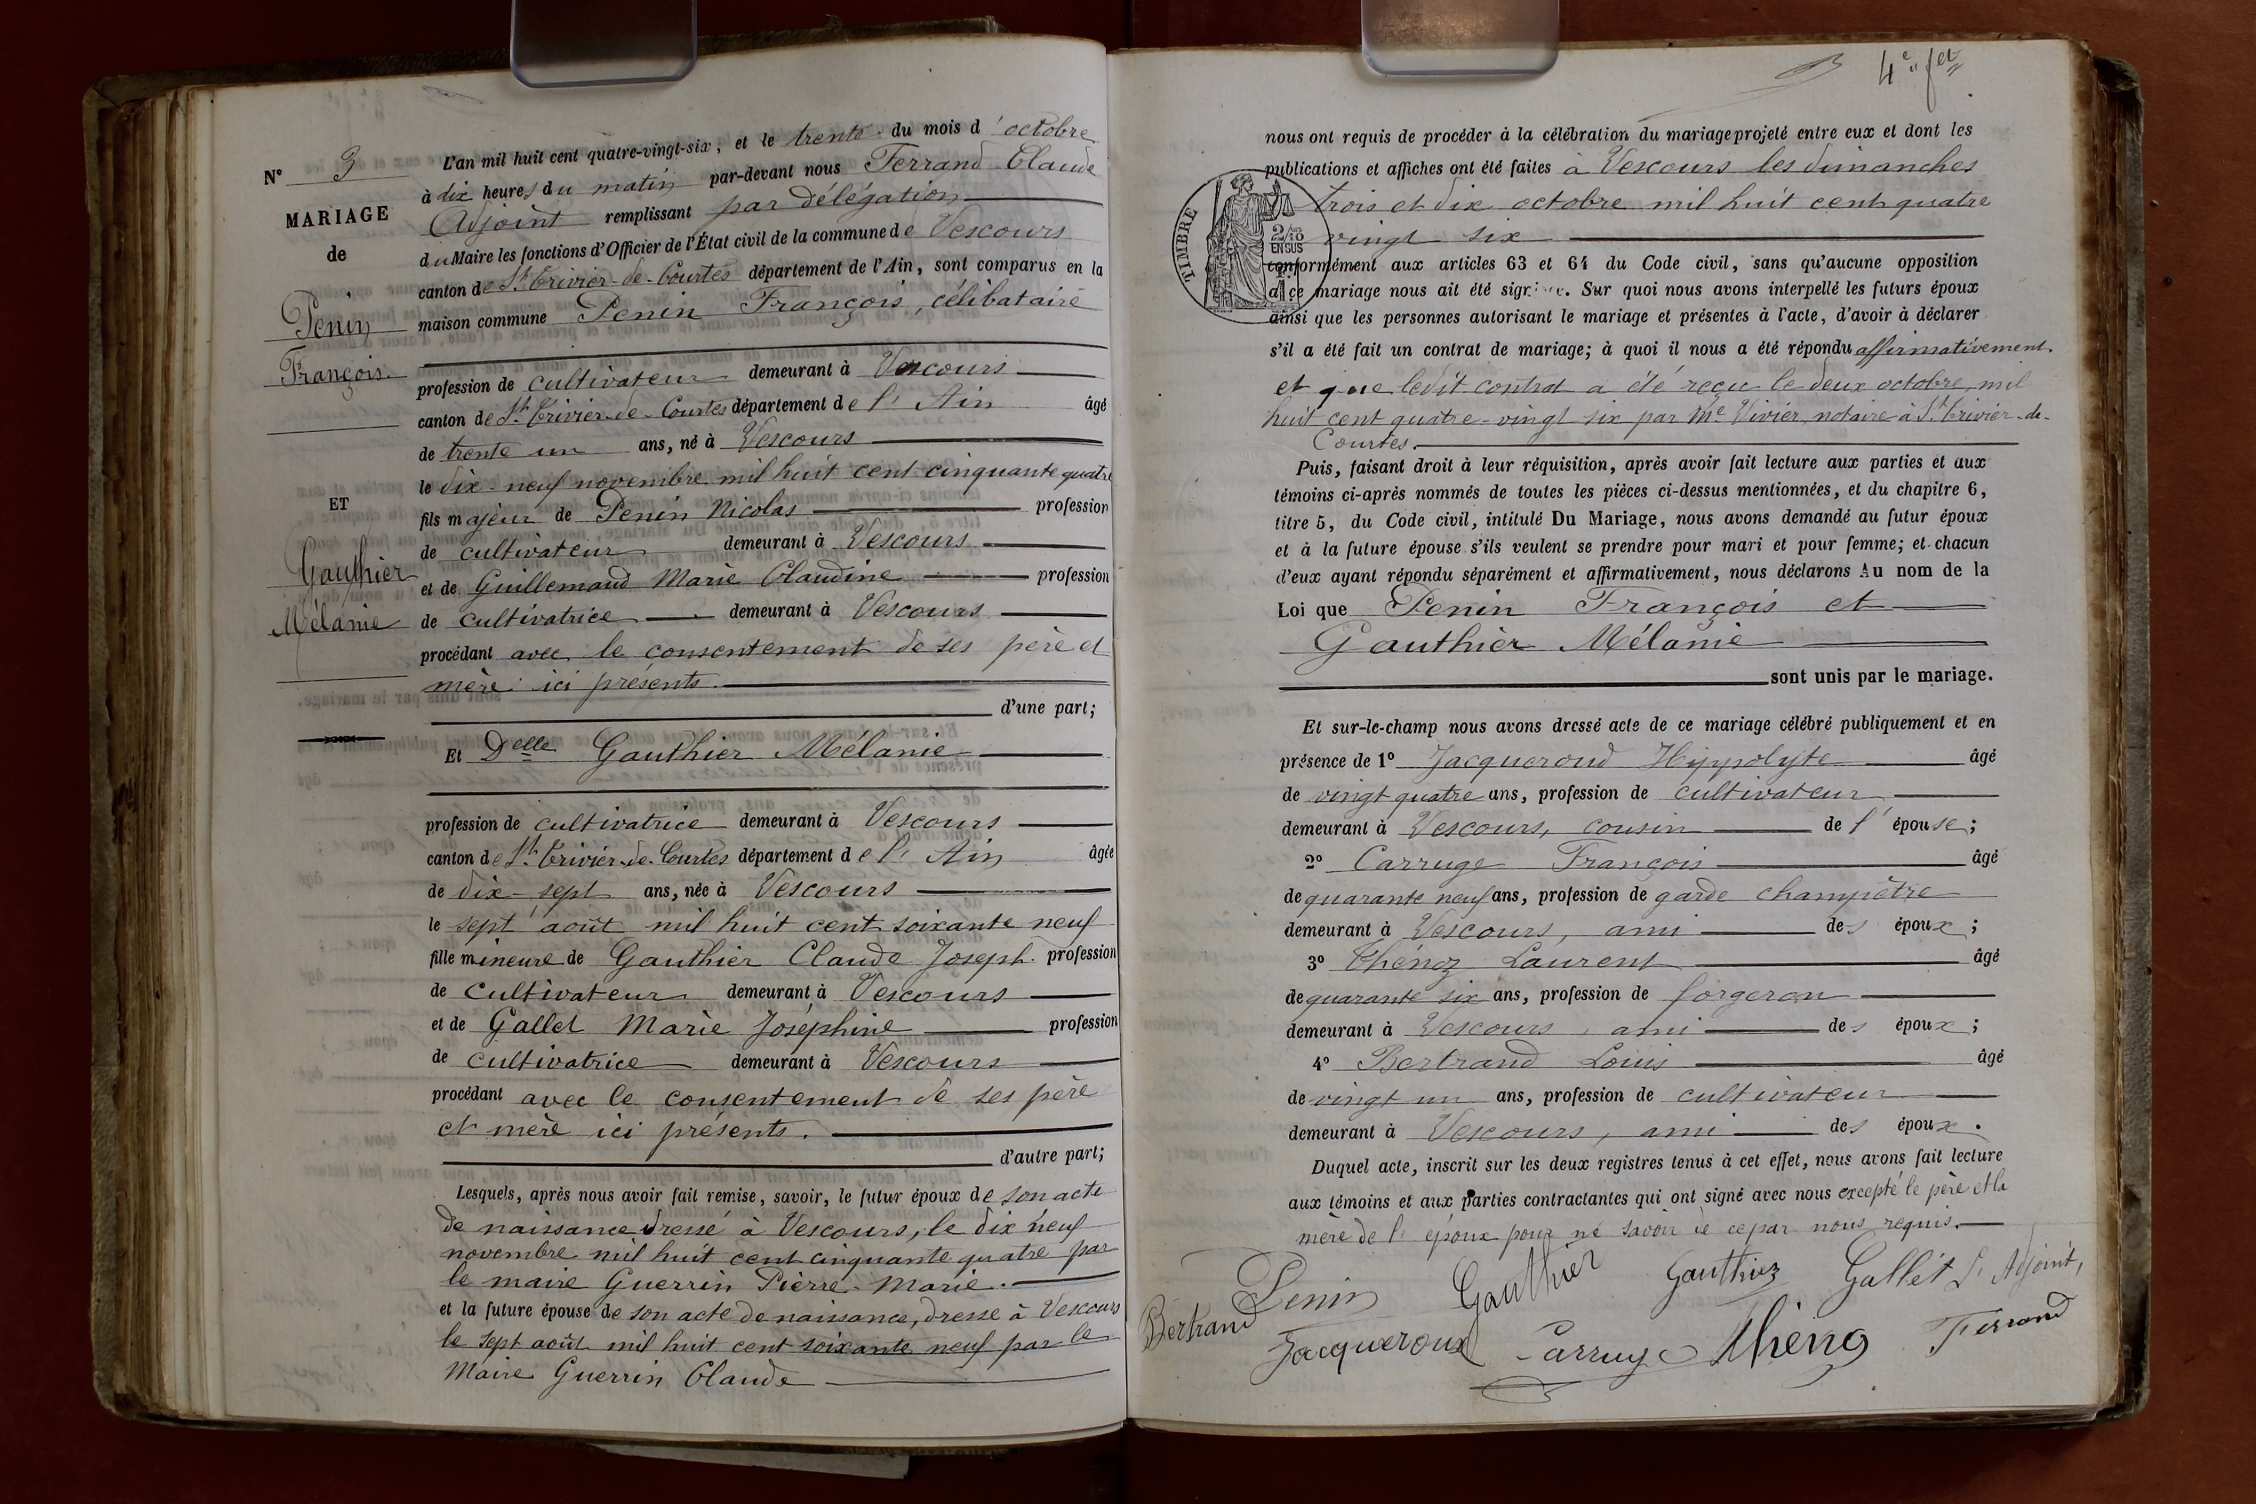 N° 3
MARIAGE
de
Penin
François
ET
Gauthier
Mélanie
L'an mil huit cent quatre-vingt-six, et le trente du mois d'octobre
à dix heures du matin par-devant nous Ferrand Claude
Adjoint remplissant par délégation
du Maire les fonctions d'Officier de l'État civil de la commune de Vescours
canton de St Trivier-de-Courtes département de l'Ain, sont comparus en la
maison commune Penin François, célibataire
profession de cultivateur demeurant à Vescours
canton de St Trivier-de-Courtes département de l'Ain âgé
de trente un ans, né à Vescours
le dix-neuf novembre mil huit cent cinquante quatre
fils majeur de Penin Nicolas profession
de cultivateur demeurant à Vescours
et de Guillemaud Marie Claudine profession
de cultivatrice demeurant à Vescours
procédant avec le consentement de ses père et
mère ici présents.
d'une part;
Et Delle Gauthier Mélanie
profession de cultivatrice demeurant à Vescours
canton de St Trivier-de-Courtes département de l'Ain âgée
de dix-sept ans, née à Vescours
le sept août mil huit cent soixante neuf
fille mineure de Gauthier Claude Joseph profession
de cultivateur demeurant à Vescours
et de Gallet Marie Joséphine profession
de cultivatrice demeurant à Vescours
procédant avec le consentement de ses père
et mère ici présents.
d'autre part;
Lesquels, après nous avoir fait remise, savoir, le futur époux de son acte
de naissance dressé à Vescours, le dix neuf
novembre mil huit cent cinquante quatre par
le maire Guerrin Pierre-Marie.
et la future épouse de son acte de naissance, dressé à Vescours
le sept août mil huit cent soixante neuf par le
Maire Guerrin Claude
4e fet
nous ont requis de procéder à la célébration du mariage projeté entre eux et dont les
publications et affiches ont été faites à Vescours les dimanches
trois et dix octobre mil huit cent quatre
vingt six
TIMBRE
2/10
EN SUS
conformément aux articles 63 et 64 du Code civil, sans qu'aucune opposition
à ce mariage nous ait été signifiée. Sur quoi nous avons interpellé les futurs époux
ainsi que les personnes autorisant le mariage et présentes à l'acte, d'avoir à déclarer
s'il a été fait un contrat de mariage; à quoi il nous a été répondu affirmativement.
et que ledit contrat a été reçu le deux octobre mil
huit cent quatre-vingt six par Me Vivier, notaire à St Trivier-de-
Courtes.
Puis, faisant droit à leur réquisition, après avoir fait lecture aux parties et aux
témoins ci-après nommés de toutes les pièces ci-dessus mentionnées, et du chapitre 6,
titre 5, du Code civil, intitulé Du Mariage, nous avons demandé au futur époux
et à la future épouse s'ils veulent se prendre pour mari et pour femme; et chacun
d'eux ayant répondu séparément et affirmativement, nous déclarons Au nom de la
Loi que Penin François et
Gauthier Mélanie
sont unis par le mariage.
Et sur-le-champ nous avons dressé acte de ce mariage célébré publiquement et en
présence de 1° Jacqueroud Hippolyte âgé
de vingt quatre ans, profession de cultivateur
demeurant à Vescours, cousin de l'épouse;
2° Carruge François âgé
de quarante neuf ans, profession de garde champêtre
demeurant à Vescours, ami des époux;
3° Thénoz Laurent âgé
de quarante six ans, profession de forgeron
demeurant à Vescours, ami des époux;
4° Bertrand Louis âgé
de vingt un ans, profession de cultivateur
demeurant à Vescours, ami des époux.
Duquel acte, inscrit sur les deux registres tenus à cet effet, nous avons fait lecture
aux témoins et aux parties contractantes qui ont signé avec nous excepté le père et la
mère de l'époux pour ne savoir de ce par nous requis.
Penin Gauthier Gauthier Gallet L'Adjoint,
Bertrand Jacqueroud Carruge Thénoz Ferrand